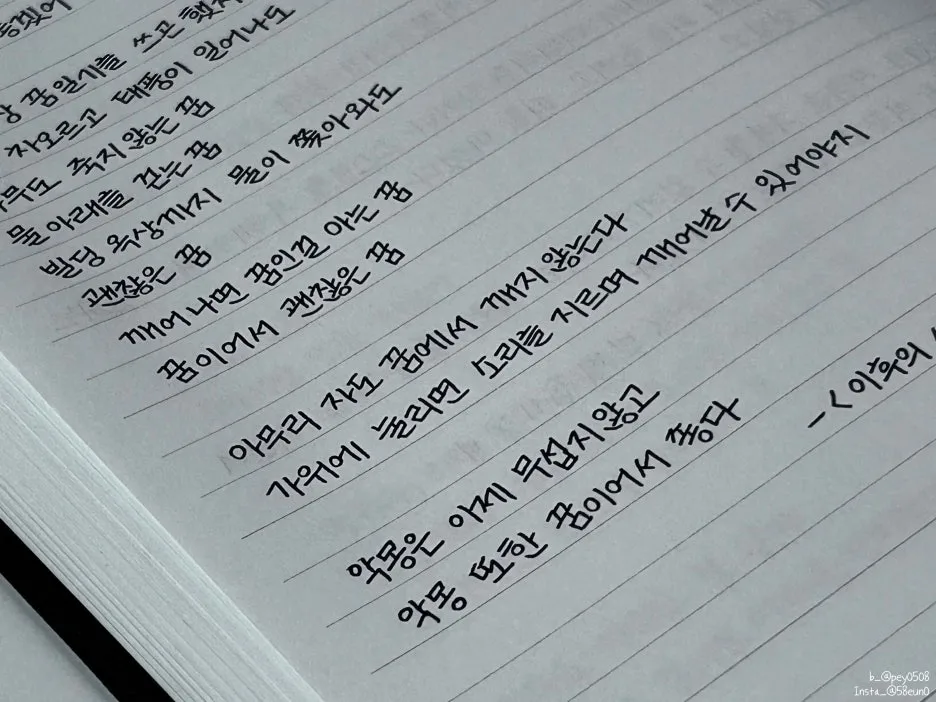 꿈일기를 쓰곤 했
차오르고 태풍이 일어나도
죽지 않는 꿈
물 아래를 걷는 꿈
빌딩 옥상까지 물이 쫓아와도
괜찮은 꿈
깨어나면 꿈인걸 아는 꿈
꿈이어서 괜찮은 꿈
아무리 자도 꿈에서 깨지 않는다
가위에 눌리면 소리를 지르며 깨어날 수 있어야지
악몽은 이제 무섭지 않고
악몽 또한 꿈이어서 좋다
-<이후의
b_@pey0508
Insta_@58eun0